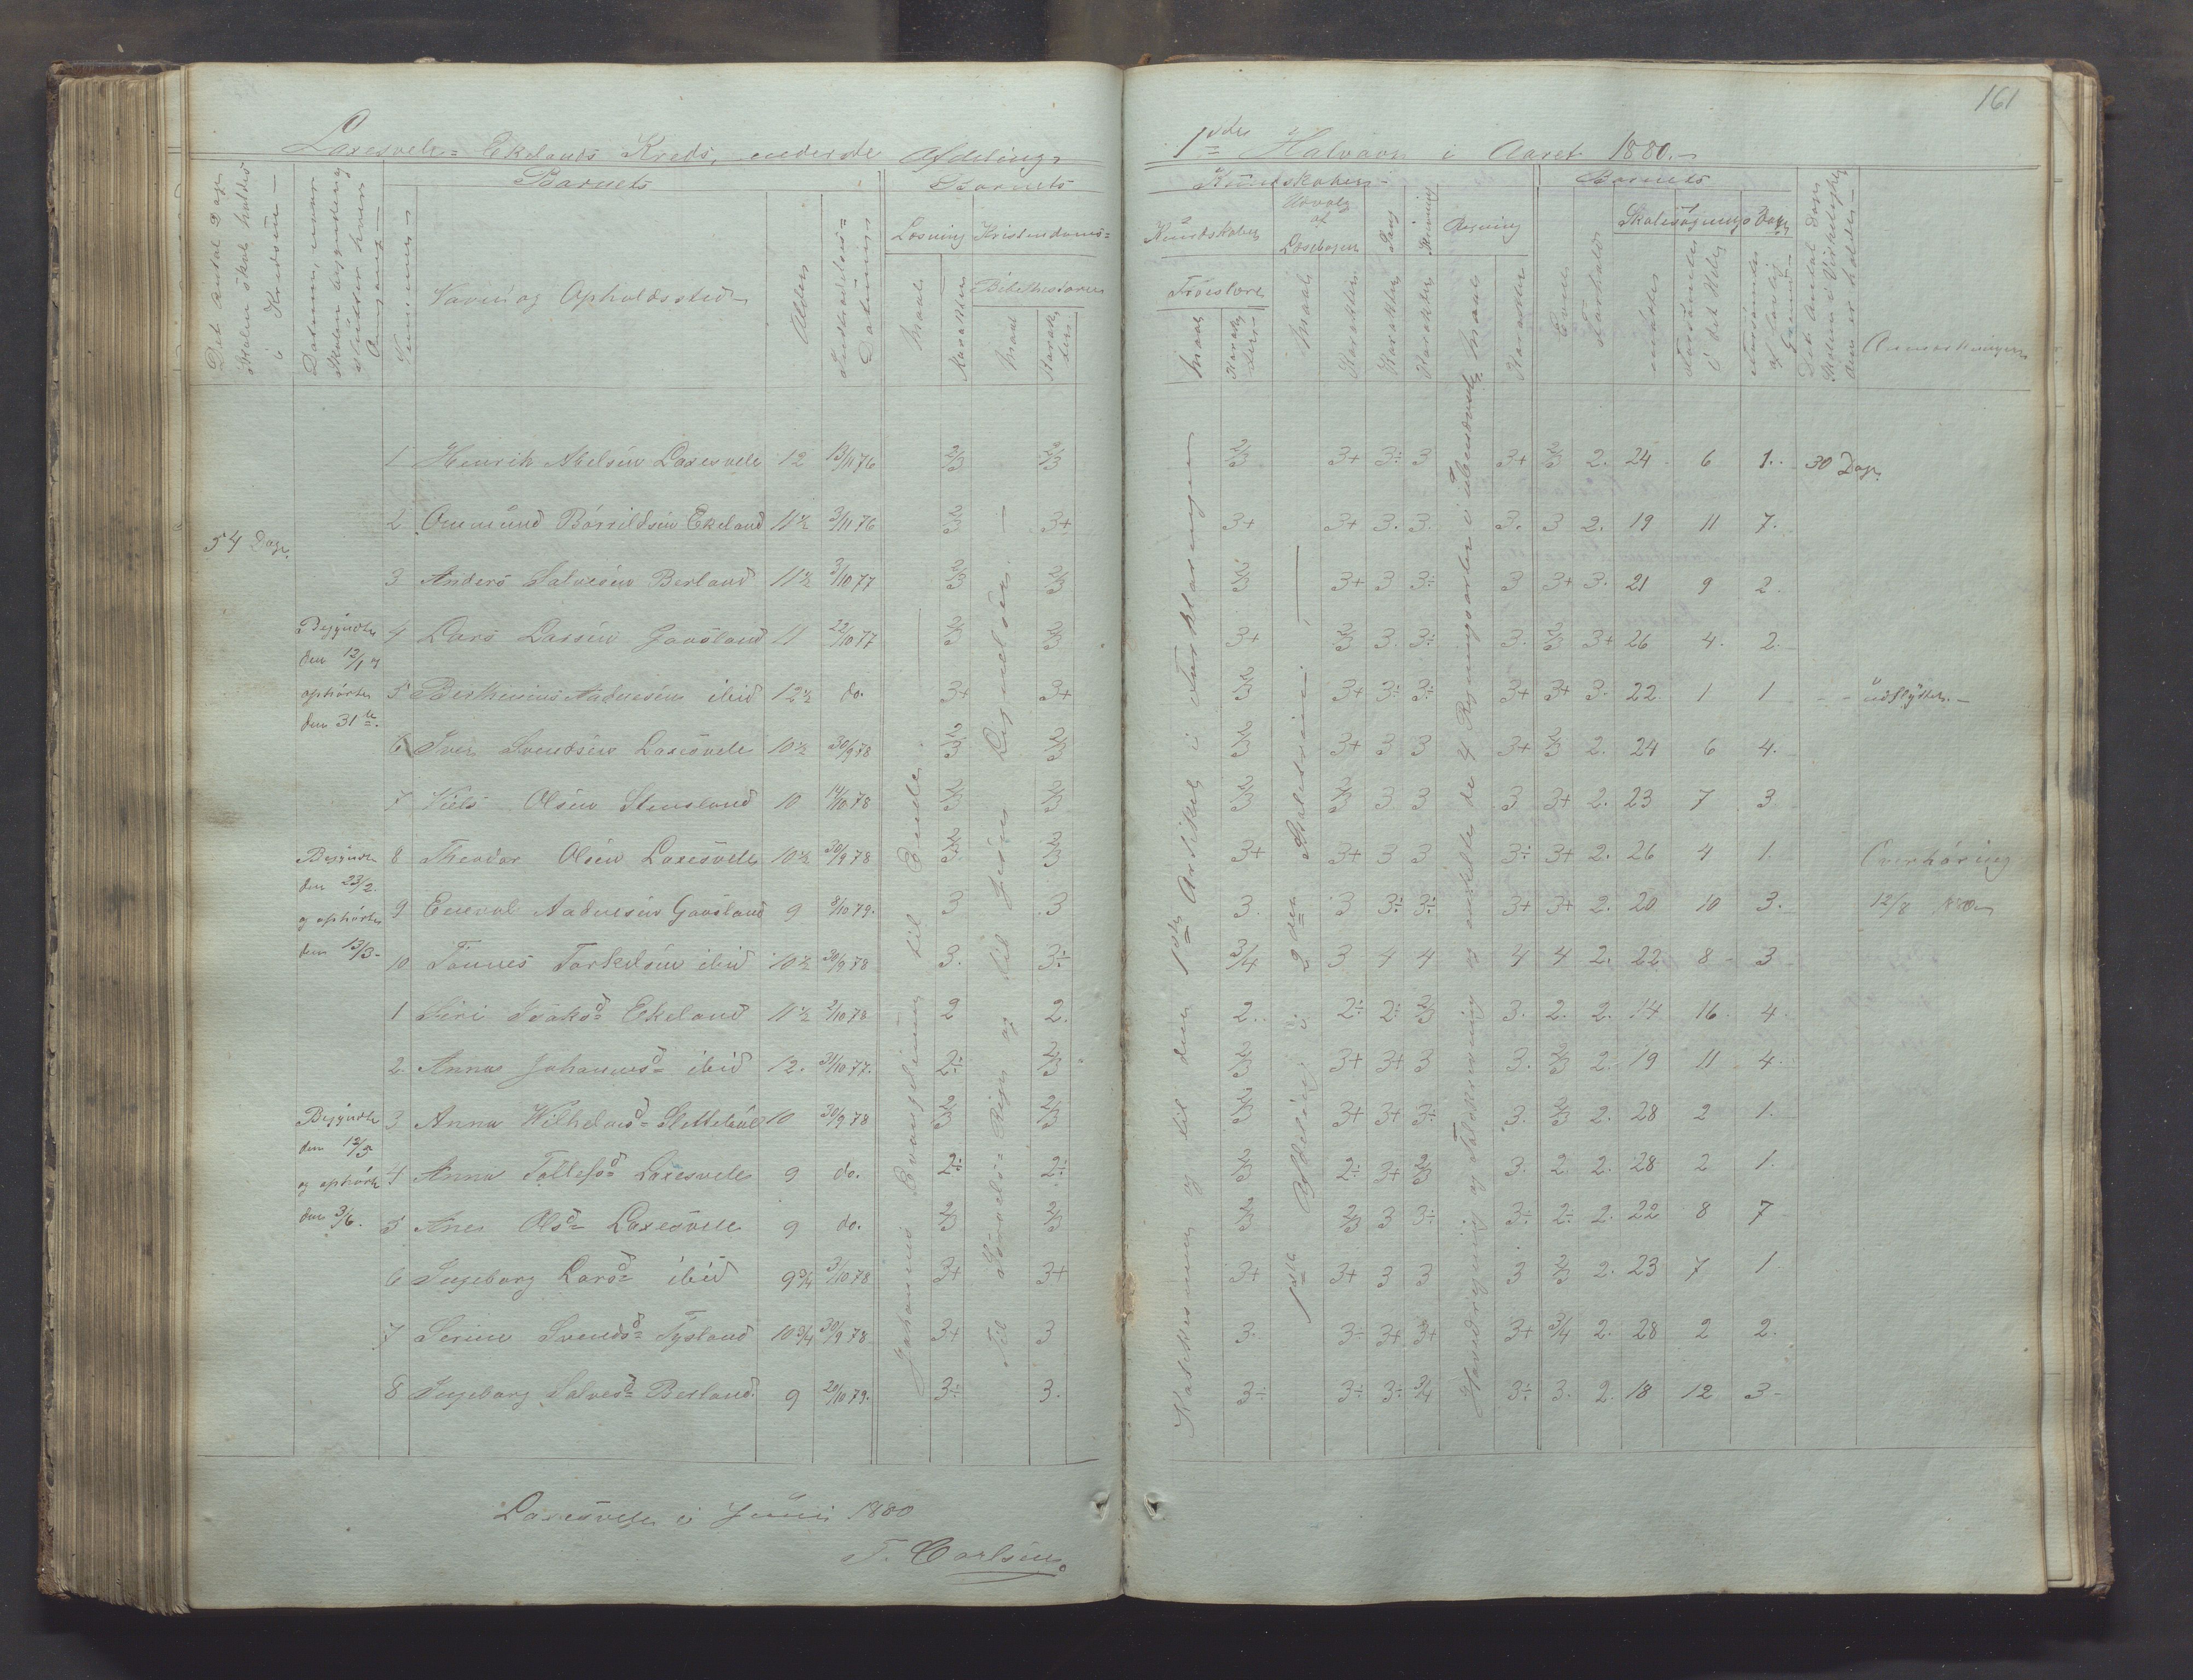 161
Laxesvele- Ekelands Kreds, nederste Afdeling. 1ste Halvaar i Aaret 1880.-
Det Antal Dage Skolen skal holdes i Kredsen -
Datum, naar Skolen begynder og slutter hver Omgang -
Barnets
Nummer
Navn og Opholdssted
Alder
Indtrædelses- Datum
Barnets
Læsning
Maal
Karakter
Kristendoms-
Bibelhistorie
Maal
Karakteren
Kundskaber
Kundskaber
Troeslære
Maal
Karakteren
Udvalg af Læsebogen
Maal
Karakter
Sang
Karakter
Skrivning
Karakter
Regning
Maal
Karakter
Barnets
Evner
Forhold
Skolesøgnings Dage
mødte
Forsømte i det Hele
forsømte af lovlig Grund
Det Antal Dage Skolen i Virkeligheden er holdt -
Anmærkninger
1 Henrik Abelsen Laxesvele 12 13/11 76 2/3 2/3 2/3 3+ 3÷ 3 3+ 2/3 2. 24 6 1. 30 Dage
2 Ommund Børrildsen Ekeland 11½ 3/11 76 2/3 3+ 3+ 3+ 3. 3. 3. 3 2. 19 11 7.
54 Dage.
3 Anders Salvesen Berland 11½ 3/10 77 2/3 2/3 2/3 3+ 3 3÷ 3 3+ 3. 21 9 2.
4 Lars Larsen Gavsland 11 22/10 77 2/3 2/3 3+ 2/3 3. 3÷ 3. 2/3 3+ 26 4. 2.
5 Berthenius Aadnesen ibid 12½ do. 3+ 3+ 2/3 3+ 3÷ 3÷ 3+ 3+ 3. 22 1 1 - - udflyttet. -
6 Iver Svendsen Laxesvele 10½ 30/9 78 2/3 2/3 2/3 3+ 3 3 3+ 2/3 2. 24 6 4.
7 Niels Olsen Stensland 10 14/10 78 2/3 2/3 2/3 2/3 3 3 3 3+ 2. 23 7 3
8 Theodor Olsen Laxesvele 10½ 30/9 78 2/3 2/3 3+ 3+ 3 3 3÷ 3+ 2. 26 4 1. Overhøring
9 Enevol Aadnesen Gavsland 9 8/10 79. 3 3 3. 3 3÷ 3÷ 3+ 3+ 2. 20 10 3. 12/8
10 Tønnes Torkelsen ibid 10½ 30/9 78 3. 3÷ 3/4 3 4 4 4 4 2. 22 8 3
1 Siri Isaksd Ekeland 11½ 2/10 78 2 2. 2. 2÷ 2÷ 2/3 3. 2. 2. 14 16 4.
2. Anna Johannesd ibid 12. 31/10 77. 2÷ 2/3 2/3 3+ 3+ 3 3. 2/3 2. 19 11 4.
3 Anna Wilhelmsd Slettebøe 10 30/9 78 2/3 2/3 2/3 3+ 3+ 3÷ 3. 2/3 2. 28 2 1.
4 Anna Tollefsd Laxesvele 9 do. 2÷ 2÷ 2/3 2÷ 3+ 2/3 3. 2. 2. 28 2 1.
5 Ane Olsd Laxesvele 9 do. 2/3 2/3 2/3 2/3 3 3÷ 3÷ 2÷ 2. 22 8 7
6 Ingeborg Larsd ibid 9¾ 3/10 78 3+ 3+ 3+ 3+ 3 3 3 2/3 2. 23 7 1.
7 Serine Svendsd Tysland 10¾ 30/9 78 3+ 3 3. 3÷ 3+ 3+ 3+ 3/4 2. 28 2 2.
8 Ingeborg Salvesd Berland. 9 20/10 79. 3÷ 3. 3÷ 3÷ 3÷ 3/4 3÷ 3. 2. 18 12 3
Begyndte
den 12/1
ophørte
den 31te.
Begyndte
den 23/2.
og ophørte
den 13/3-
Begyndte
den 12/5
og ophørte
den 3/6.
Johannes Evangelium til Ende.
Til Samuels-Bogen og til Jesu Lignelser.
Katekismus og til den 1ste Artikel i Forklaringen
1ste Afdeling i 2den Skoletrin.
Hovedregning og Taleskrivning og enkelte de 4 Regningsarter i ubenævnte
Laxesvele i Juni 1880
T. Carlsen.